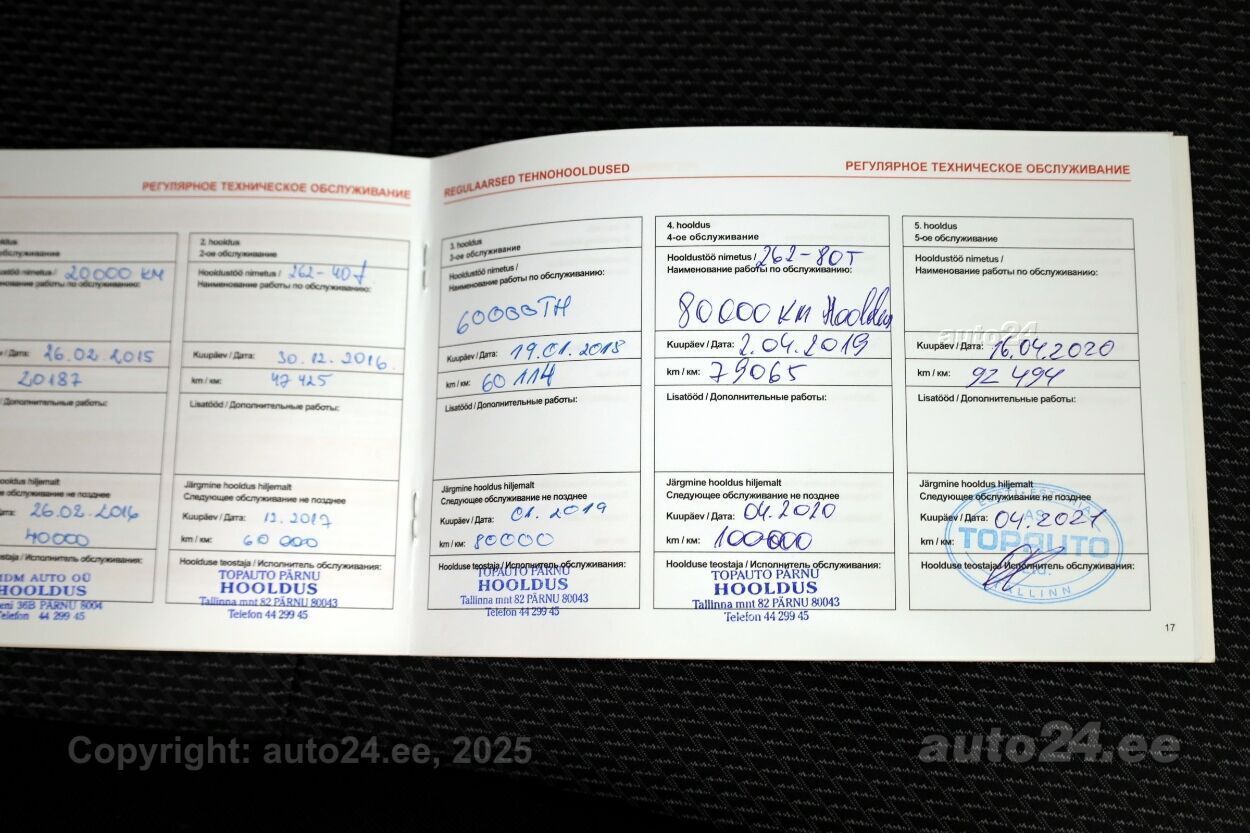 РЕГУЛЯРНОЕ ТЕХНИЧЕСКОЕ ОБСЛУЖИВАНИЕ
nimetus / 20000 KM
по обслуживанию:
/ Дата: 26.02.2015
20187
/ Дополнительные работы:
hooldus hiljemalt
обслуживание не позднее
26.02.2016
40000
/ Исполнитель обслуживания:
AUTO OÜ
HOOLDUS
36B PÄRNU 8004
44 299 45
2. hooldus
2-ое обслуживание
Hooldustöö nimetus / 262-40T
Наименование работы по обслуживанию:
Kuupäev / Дата: 30.12.2016.
km / км: 47425
Lisatööd / Дополнительные работы:
Järgmine hooldus hiljemalt
Следующее обслуживание не позднее
Kuupäev / Дата: 12.2017
km / км: 60 000
Hoolduse teostaja / Исполнитель обслуживания:
TOPAUTO PÄRNU
HOOLDUS
Tallinna mnt 82 PÄRNU 80043
Telefon 44 299 45
REGULAARSED TEHNOHOOLDUSED
РЕГУЛЯРНОЕ ТЕХНИЧЕСКОЕ ОБСЛУЖИВАНИЕ
3. hooldus
3-ое обслуживание
Hooldustöö nimetus /
Наименование работы по обслуживанию:
60000TH
Kuupäev / Дата: 19.01.2018
km / км: 60114
Lisatööd / Дополнительные работы:
Järgmine hooldus hiljemalt
Следующее обслуживание не позднее
Kuupäev / Дата: 01.2019
km / км: 80000
Hoolduse teostaja / Исполнитель обслуживания:
TOPAUTO PÄRNU
HOOLDUS
Tallinna mnt 82 PÄRNU 80043
Telefon 44 299 45
4. hooldus
4-ое обслуживание
Hooldustöö nimetus / 262-80T
Наименование работы по обслуживанию:
80000 KM
Kuupäev / Дата: 2.04.2019
km / км: 79065
Lisatööd / Дополнительные работы:
Järgmine hooldus hiljemalt
Следующее обслуживание не позднее
Kuupäev / Дата: 04.2020
km / км: 100000
Hoolduse teostaja / Исполнитель обслуживания:
TOPAUTO PÄRNU
HOOLDUS
Tallinna mnt 82 PÄRNU 80043
Telefon 44 299 45
5. hooldus
5-ое обслуживание
Hooldustöö nimetus /
Наименование работы по обслуживанию:
auto24
Kuupäev / Дата: 16.04.2020
km / км: 92 494
Lisatööd / Дополнительные работы:
Järgmine hooldus hiljemalt
Следующее обслуживание не позднее
Kuupäev / Дата: 04.2021
km / км:
Hoolduse teostaja / Исполнитель обслуживания:
AS
TOPAUTO
TALLINN
17
Copyright: auto24.ee, 2025
auto24.ee